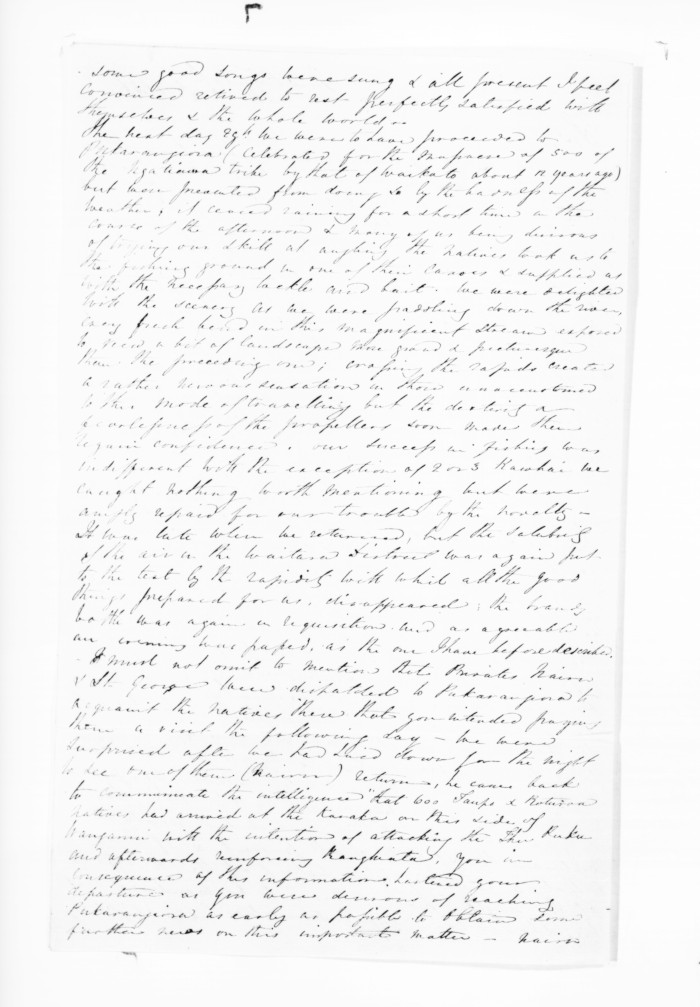 some good songs were sung & all present I feel
convinced retired to rest perfectly satisfied with
themselves & the whole world.
The next day 29th we were to have proceeded to
Pukarangiora (Celebrated for the Massacre of 500 of
the Ngatiawa tribe by that of Waikato about 12 years ago)
but were prevented from doing so by the badness of the
weather, it ceased raining for a short time in the
course of the afternoon & many of us being desirous
of trying our skill at angling the natives took us to
the fishing ground in one of their canoes & supplied us
with the necessary tackle and bait. We were delighted
with the scenery as we were paddling down the river
every fresh bend in this magnificent stream exposed
to view a bit of landscape more grand & picturesque
than the preceding one; crossing the rapids created
a rather nervous sensation in those unaccustomed
to this mode of travelling but the dexterity &
of the propellers soon made them
regain confidence. our success in fishing was
indifferent with the exception of 2 or 3 Kawhai we
caught nothing worth mentioning but were
amply repaid for our trouble by the novelty –
It was late when we returned, but the salubrity
of the air in the Waitara District was again put
to the test by the rapidity with which all the good
things prepared for us, disappeared; the brandy
bottle was again in requisition and as agreeable
an evening was passed, as the one I have before described.
– I must not omit to mention that Privates Nairn
& St. George were dispatched to Pukarangiora to
acquaint the natives there that you intended paying
them a visit the following day – We were
surprised after we had laid down for the night
to see one of them (Nairn) return, he came back
to communicate the intelligence "that 600 Taupo & Roturoa
natives had arrived at the Karaka on this side of
Wanganui with the intention of attacking the
and afterwards reinforcing Rangihiata, You in
consequence of this information hastened your
departure as you were desirous of reaching
Pukarangiora as early as possible to obtain some
further news on this important matter – Nairn